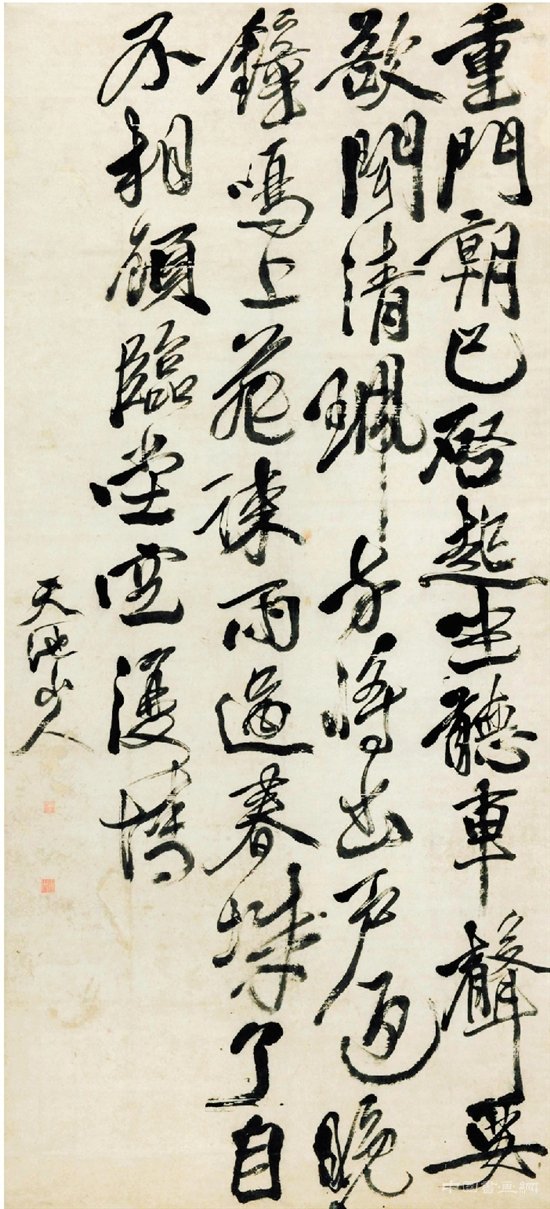 重門朝已啓起坐聽車聲要
欲聞清珮方將出戶迎晚
鐘鳴上苑疎雨過春城了自
不相顧臨堂空復情
天池山人
中国書画網